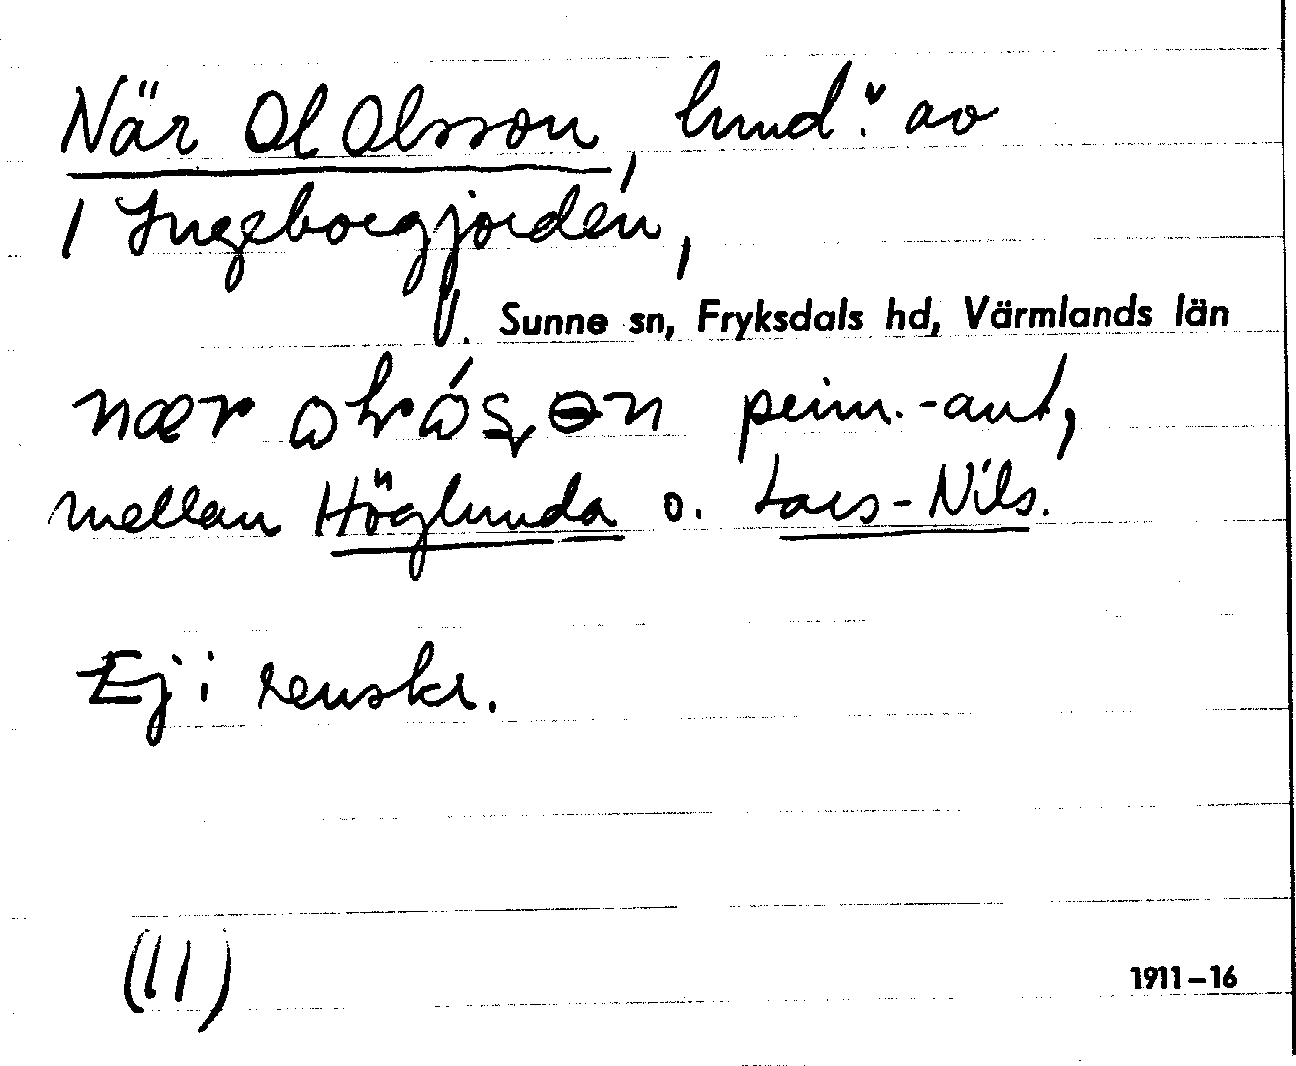 När Ol Olsson, hmd:v av
1 Ingeborgjorden,
V. Sunne sn, Fryksdals hd, Värmlands län
nær prim.-ant,
mellan Höglunda o. Lars-Nils.
Ej i renskr.
(11)
1911-16